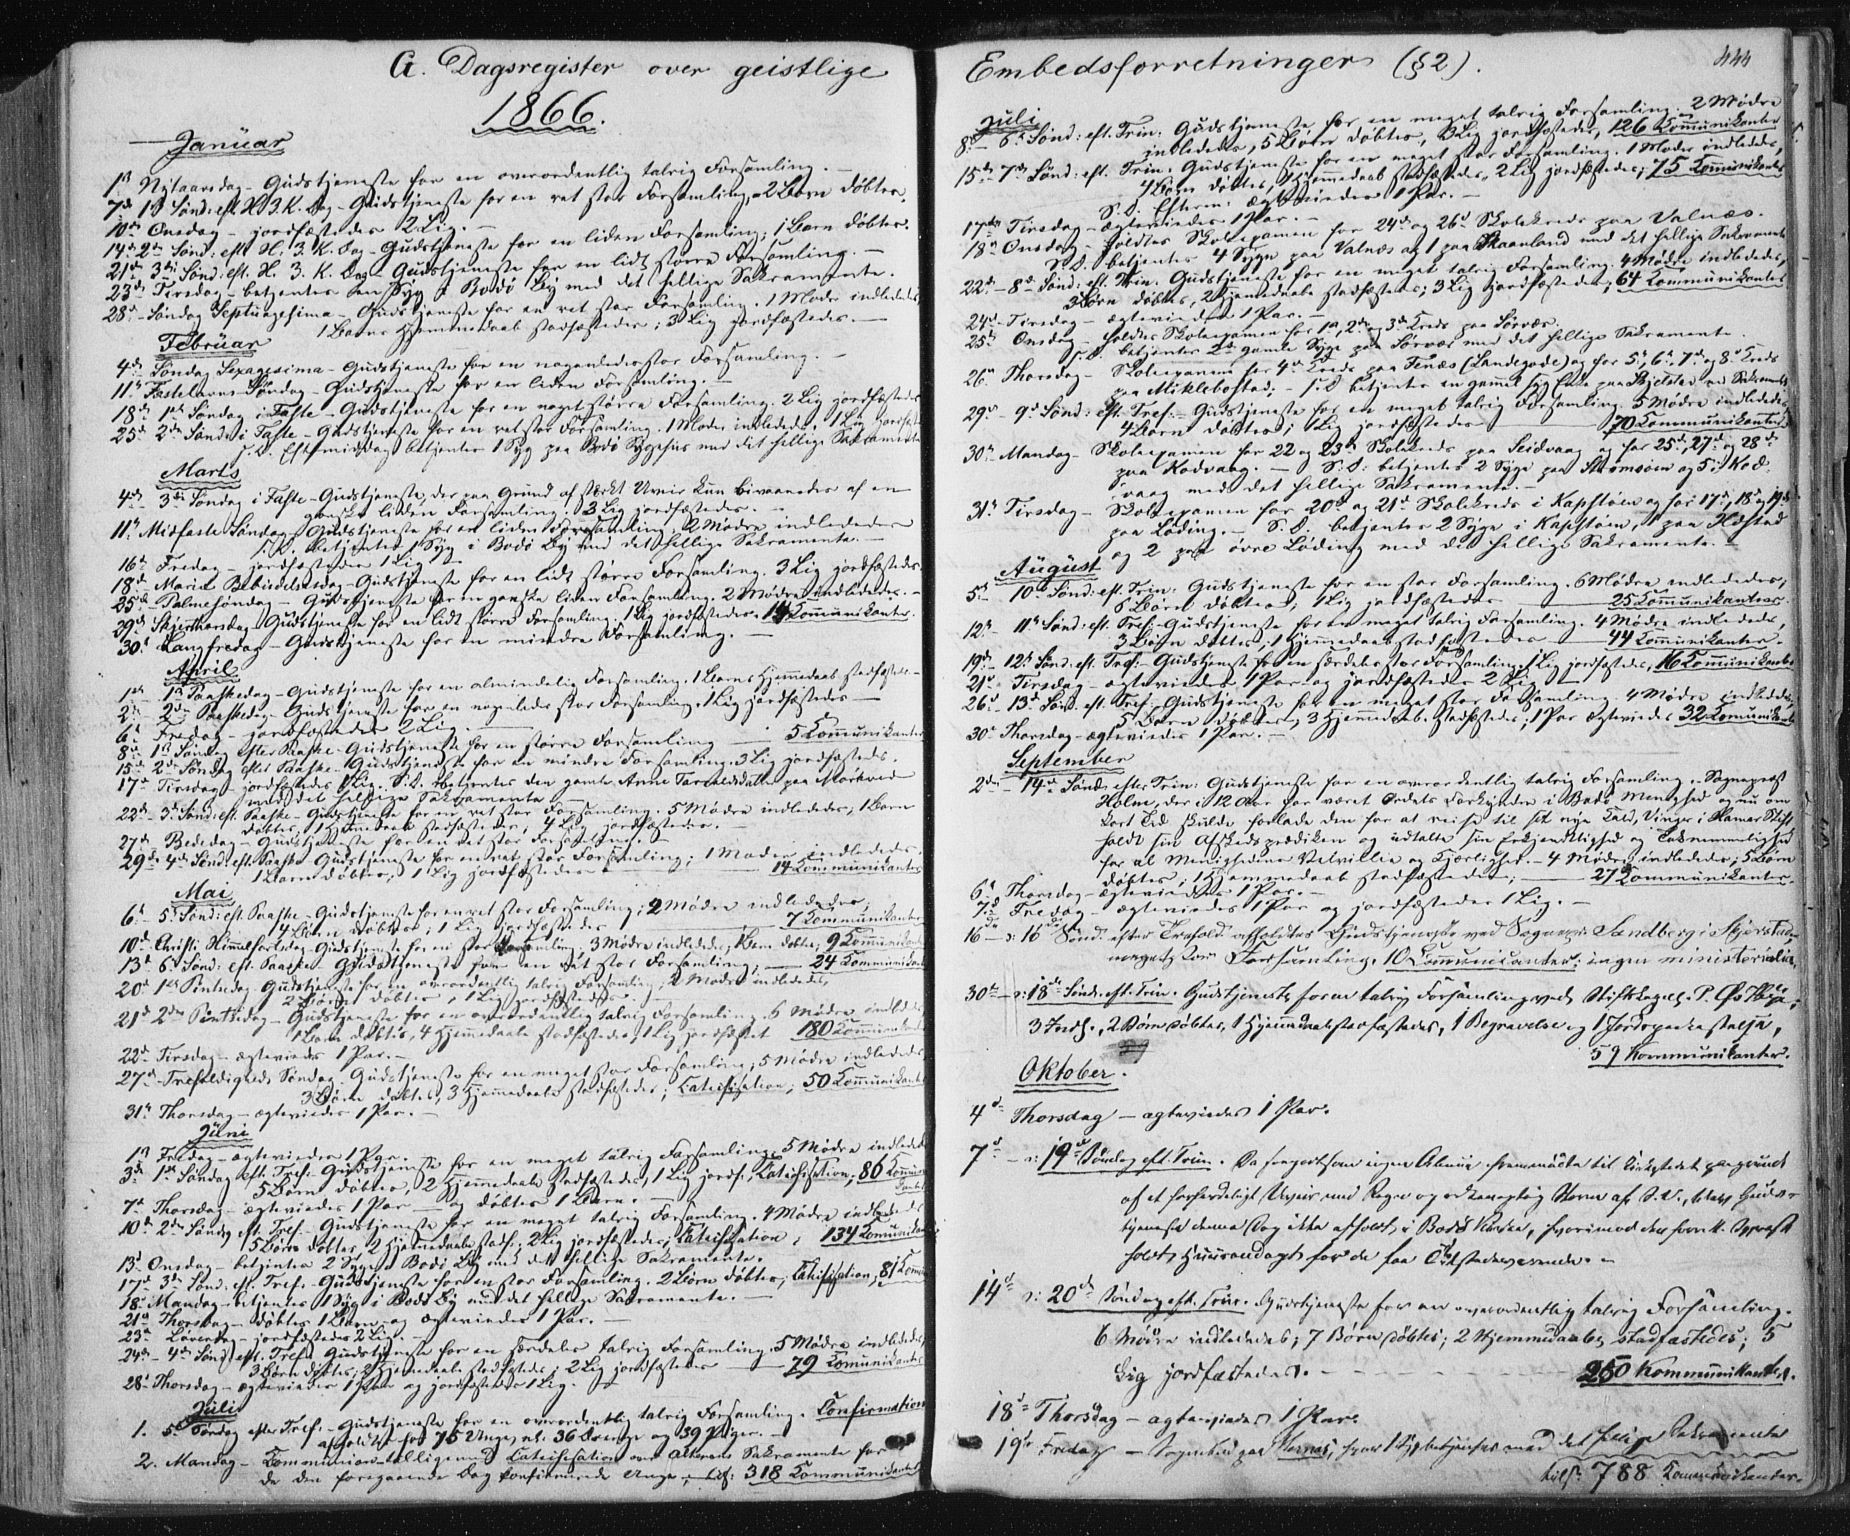 G. Dagsregister over geistlige
1866.
Januar
1ste Nytaarsdag – Gudstjeneste for en overordentlig talrig Forsamling. –
7de 1ste Sønd: eft. H. 3. K. Dag – Gudstjeneste for en ret stor Forsamling, 2 Børn døbtes.
10de Onsdag – jordfæstedes 2 Lig. –
14de 2den Sønd: eft. H. 3. K. Dag – Gudstjeneste for en liden Forsamling; 1 Barn døbtes.
21de 3die Sønd: eft. H. 3. K. Dag – Gudstjeneste for en lidt større Forsamling. –
23de Tirsdag – betjentes en Syg i Bodø By med det hellige Sakramente. –
28de Søndag Septuagesima – Gudstjeneste for en ret stor Forsamling. 1 Moder indledes
1 Barns Hjemmedaab stadfæstedes; 3 Lig jordfæstedes. –
Februar
4de Søndag Sexagesima – Gudstjeneste for en nogenledes stor Forsamling. –
11te Fastelavns Søndag – Gudstjeneste for en liden Forsamling. –
18de 1ste Søndag i Faste – Gudstjeneste for en noget større Forsamling. 2 Lig jordfæstedes
25de 2den Sønd: i Faste – Gudstjeneste for en ret stor Forsamling. 1 Moder indledes. 1 Lig jordfæst
S. D. Eftermiddag betjentes 1 Syg paa Bodø Sygehus med det hellige Sakramente
Marts
4de 3die Søndag i Faste – Gudstjeneste, der paa Grund af stærkt Uveir kun bivaanedes af en
ganske liden Forsamling. 3 Lig jordfæstedes. –
11te Midfaste Søndag – Gudstjeneste for en liden Forsamling, 2 Mødre indledes
S. D. betjentes 1 Syg i Bodø By med det hellige Sakramente. –
16de Fredag – jordfæstedes 1 Lig –
18de Mariæ Bebudelsesdag – Gudstjeneste for en lidt større Forsamling. 3 Lig jordfæstedes.
25de Palmesøndag – Gudstjeneste for en ganske liden Forsamling. 2 Mødre indledes. –
29de Skjærthorsdag – Gudstjeneste for en lidt større Forsamling. 1 Lig jordfæstedes. 14 Kommunikanter.
30te Langfredag – Gudstjeneste for en mindre Forsamling. –
April
1ste 1ste Paaskedag – Gudstjeneste for en almindelig Forsamling. 1 Barns Hjemmedaab stadfæstedes –
2den 2den Paaskedag – Gudstjeneste for en nogenledes stor Forsamling. 1 Lig jordfæstedes
6te Fredag – jordfæstedes 2 Lig. –
8de 1ste Søndag efter Paaske – Gudstjeneste for en større Forsamling 5 Kommunikanter
15de 2den Søndag efter Paaske – Gudstjeneste for en mindre Forsamling. 3 Lig jordfæstedes.
17de Tirsdag – jordfæstedes 1 Lig. S. D. betjentes den gamle Anne paa Mørkved
med det hellige Sakramente –
22de 3die Sønd: eft. Paaske – Gudstjeneste for en ret stor Forsamling. 5 Mødre indledes, 1 Barn
døbtes, 1 Hjemmedaab stadfæstedes; 4 Lig jordfæstedes. –
27de Bededag – Gudstjeneste for en ret stor Forsamling. –
29de 4de Sønd: eft. Paaske – Gudstjeneste for en ret stor Forsamling; 1 Moder indledes.
1 Barn døbtes; 1 Lig jordfæstedes – 14 Kommunikanter
Mai
6te 5te Sønd: eft. Paaske – Gudstjeneste for en ret stor Forsamling; 2 Mødre indledes;
4 Børn døbtes; 1 Lig jordfæstedes 7 Kommunikanter
10de Christi Himmelfartsdag – Gudstjeneste for en stor Forsamling. 3 Mødre indledes, 1 Barn døbtes, 9 Kommunikant
13de 6te Sønd: eft. Paaske – Gudstjeneste for en ret stor Forsamling; 24 Kommunikant
20de 1ste Pintsedag – Gudstjeneste for en overordentlig talrig Forsamling, 2 Mødre indledes,
2 Børn døbtes, 1 Lig jordfæstedes.
21de 2den Pintsedag – Gudstjeneste for en overordentlig talrig Forsamling. 6 Mødre indledes
1 Barn døbtes, 4 Hjemmedaab stadfæstedes, 1 Lig jordfæstet 180 Kommunikant
22de Tirsdag – ægteviedes 1 Par. –
27de Trefoldigheds Søndag – Gudstjeneste for en meget stor Forsamling; 5 Mødre indledes
3 Børn døbtes, 3 Hjemmedaab stadfæstedes; Catechisation; 50 Kommunikant
31te Thorsdag – ægteviedes 1 Par. –
Juni
1ste Fredag – ægteviedes 1 Par. –
3die 1ste Søndag eft. Tref. Gudstjeneste for en meget talrig Forsamling. 5 Mødre indledes
5 Børn døbtes, 2 Hjemmedaab stadfæstedes, 1 Lig jordf., Catechisation; 86 Kommunikanter
7de Thorsdag – ægteviedes 1 Par – og døbtes 1 Barn. –
10de 2den Søndag eft. Tref. – Gudstjeneste for en meget talrig Forsamling. 4 Mødre indledes
5 Børn døbtes, 2 Hjemmedaab stadf.; 2 Lig jordfæstedes; Catechisation; 134 Komunikant
13de Onsdag – betjentes 2 Syge i Bodø By med det hellige Sakramente. –
17de 3die Sønd. eft. Tref. – Gudstjeneste for en stor Forsamling. 2 Børn døbtes; Catechisation; 81 Komun
18de Mandag – betjentes 1 Syg i Bodø By med det hellige Sakramente. –
21de Thorsdag – døbtes 1 Barn og ægteviedes 1 Par. –
23de Løverdag – jordfæstedes 2 Lig. –
24de 4de Sønd. eft. Tref. Gudstjeneste for en særdeles talrig Forsamling. 5 Mødre indledes;
3 Børn døbtes; 2 Hjemmedaab stadfæstedes; 2 Lig jordfæstedes 79 Komunikanter
28de Thorsdag – ægteviedes 1 Par og jordfæstedes 1 Lig. –
Juli
1. 5te Søndag efter Tref. – Gudstjeneste for en overordentlig talrig Forsamling. Confirmation
afholdt for 75 Unge, nl. 36 Drenge og 39 Piger. –
2. Mandag – Communion – alligemed Catechisation over Alterens Sakramente for
de den foregaaende Dag konfirmerede Unge; tils: 318 Communikanter
Embedsforretninger (§2).
444
Juli
8de – 6te Sønd: eft. Trin: Gudstjeneste for en meget talrig Forsamling. 2 Mødre
indledes, 5 Børn døbtes, 3 Lig jordfæstedes, 126 Kommunikanter
15de 7de Sønd: eft. Trin: Gudstjeneste for en meget stor Forsamling. 1 Moder indledes,
4 Børn døbtes, 1 Hjemmedaab stadfæstedes, 2 Lig jordfæstedes; 75 Kommunikanter
S. D. Efterm: ægteviedes 1 Par. –
17de Tirsdag – ægteviedes 1 Par. –
18de Onsdag – holdtes Skoleexamen for 24de og 26de Skolekreds paa Valnæs.
S. D. betjentes 4 Syge paa Valnæs og 1 paa Skaanland med det hellige Sakramente
22de – 8de Sønd: eft. Trin. Gudstjeneste for en meget talrig Forsamling. 4 Mødre indledes,
3 Børn døbtes, 2 Hjemmedaab stadfæstedes; 3 Lig jordfæstedes; 64 Kommunikanter
24de – Tirsdag – ægteviedes 1 Par. –
25de Onsdag – holdtes Skoleexamen for 1ste, 2den og 3die Kreds paa Sørvær.
S. D. betjentes 2de gamle Syge paa Sørvær med det hellige Sakramente.
26de Thorsdag – Skoleexamen for 4de Kreds paa Fenæs (Landegode) og for 5te, 6te, 7de og 8de Kreds
paa Mikkelbostad; – S. D. betjentes en gammel syg paa med Sakramentet
29de – 9de Sønd: eft. Tref. – Gudstjeneste for en meget talrig Forsamling. 5 Mødre indledes;
4 Børn døbtes; 1 Lig jordfæstedes 70 Kommunikanter
30te Mandag – Skoleexamen for 22 og 23de Skolekreds paa Seidvaag og for 25de, 27de og 28de
paa Kodvaag. – S. D: betjentes 2 Syge paa Straumsøen og 5 i Kod-
vaag med det hellige Sakramente. –
31te Tirsdag – Skoleexamen for 20de og 21de Skolekreds i Kapstøen og for 17de, 18de og 19de
paa Løding. – S. D. betjentes 2 Syge i Kapstøen, 1 paa Hæstad
og 2 paa øvre Løding med det hellige Sakramente. –
August
5te 10de Sønd: eft. Trin: Gudstjeneste for en stor Forsamling. 6 Mødre indledes;
6 Børn døbtes; 1 Lig jordfæstedes 25 Kommunikanter.
12te 11te Sønd: eft. Tref: Gudstjeneste for en meget talrig Forsamling. 4 Mødre indledes,
3 Børn døbtes, 1 Hjemmedaab stadfæstedes 44 Kommunikanter.
19de – 12te Sønd: eft. Tref. – Gudstjeneste for en særdeles stor Forsamling, 1 Lig jordfæstedes, 16 Kommunikanter
21de – Tirsdag – ægteviedes 1 Par og jordfæstedes 2 Lig
26de – 13de Sønd: eft. Tref. – Gudstjeneste for en meget stor Forsamling. 4 Mødre indledes,
5 Børn døbtes, 3 Hjemmedaab stadfæstedes; 1 Par ægteviedes 32 Komunikant
30te Thorsdag – ægteviedes 1 Par. –
September
2den – 14de Sønd: efter Trin: Gudstjeneste for en overordentlig talrig Forsamling. – Sognepræst
Holme, der i 12 Aar har været Ordets Forkynder i Bodø Menighed og nu om
kort Tid skulde forlade den for at reise til sit nye Kald, Vinger i Hamar Stift
holdt sin Afskedsprædiken og udtalte sin Erkjendtlighed og Taknemmelighed
for al Menighedens Velvillie og Kjerlighed. – 4 Mødre indledes; 5 Børn
døbtes; 1 Hjemmedaab stadfæstedes; 27 Kommunikanter.
6te Thorsdag – ægteviedes 1 Par. –
7de Fredag – ægteviedes 1 Par og jordfæstedes 1 Lig. –
16de – s: 16de Sønd. efter Trefold. afholdtes Gudstjeneste ved Sognepr. Sandberg i Skjerstad,
meget stor Forsamling. 10 Communicanter; ingen ministerialia.
30te – s: 18de Sønd. eft. Trin. Gudstjeneste for en talrig Forsamling ved Stiftskapel. P.
3 Indl., 2 Børn døbtes, 1 Hjemmedaab stadfæstedes, 1 Begravelse og 1 Jordspaakastelse,
59 Kommunikanter.
Oktober.
4de Thorsdag – ægteviedes 1 Par.
7de – s: 19de Søndag eft. Trin. Da ingen Almue fremmødte til Kirkestedet paa Grund
af et forfærdeligt Uveir med Regn og orkanagtig Storm af S. V., blev Guds-
tjeneste denne Dag ikke afholdt i Bodø Kirke, hvorimod den
holdt Huusandagt for de faa Tilstedeværende. –
14de s: 20de Søndag eft. Trin. Gudstjeneste for en overordentlig talrig Forsamling.
6 Mødre indledes; 7 Børn døbtes; 2 Hjemmedaab stadfæstedes; 5
Lig jordfæstedes. 250 Kommunikanter.
18de Thorsdag – ægteviedes 1 Par.
19de Fredag – paa hvor 1 Syg betjentes med det hellige Sakramente
tils: 788 Kommunikanter.